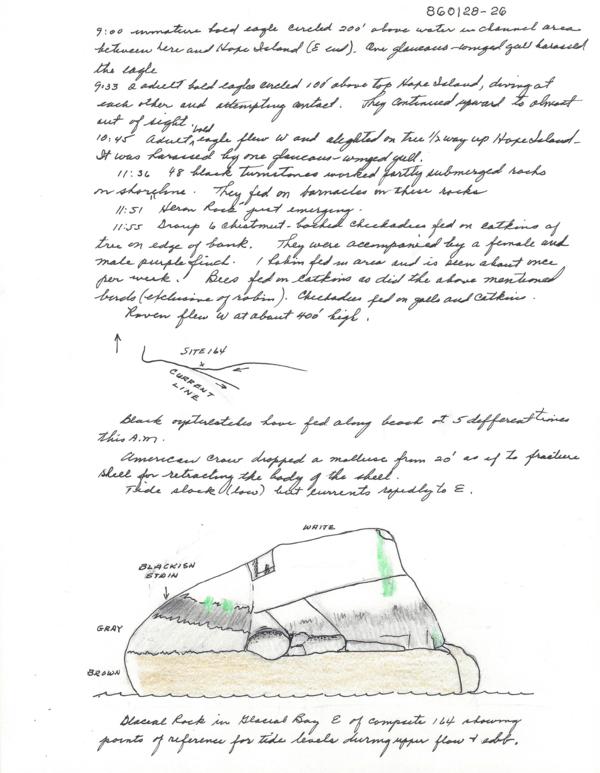 860128-26
9:00 immature bald eagle circled 200' above water in channel area
between here and Hope Island (E end). One glaucous-winged gull harassed
the eagle
9:33 2 adult bald eagles circled 100' above top Hope Island, diving at
each other and attempting contact. They continued upward to almost
out of sight.
10:45 Adult bald eagle flew W and alighted on tree 1/2 way up Hope Island-
It was harassed by one glaucous-winged gull.
11:36 48 black turnstones worked partly submerged rocks
on shoreline. They fed on barnacles on these rocks
11:51 "Heron Rock" just emerging.
11:55 Group 6 chestnut-backed chickadees fed on catkins of
tree on edge of bank. They were accompanied by a female and
male purple finch. 1 robin fed in area and is seen about once
per week. Bees fed on catkins as did the above mentioned
birds (exclusive of robin). Chickadees fed on galls and catkins.
Raven flew W at about 400' high.
SITE 164
x
CURRENT
LINE
Black oystercatchers have fed along beach at 5 different times
this A.M.
American crow dropped a mollusc from 20' as if to fracture
shell for retracting the body of the shell.
Tide slack (low) but currents rapidly to E.
WHITE
BLACKISH
STAIN
GRAY
BROWN
Glacial Rock in Glacial Bay E of campsite 164 showing
points of reference for tide levels during upper flow & ebb.